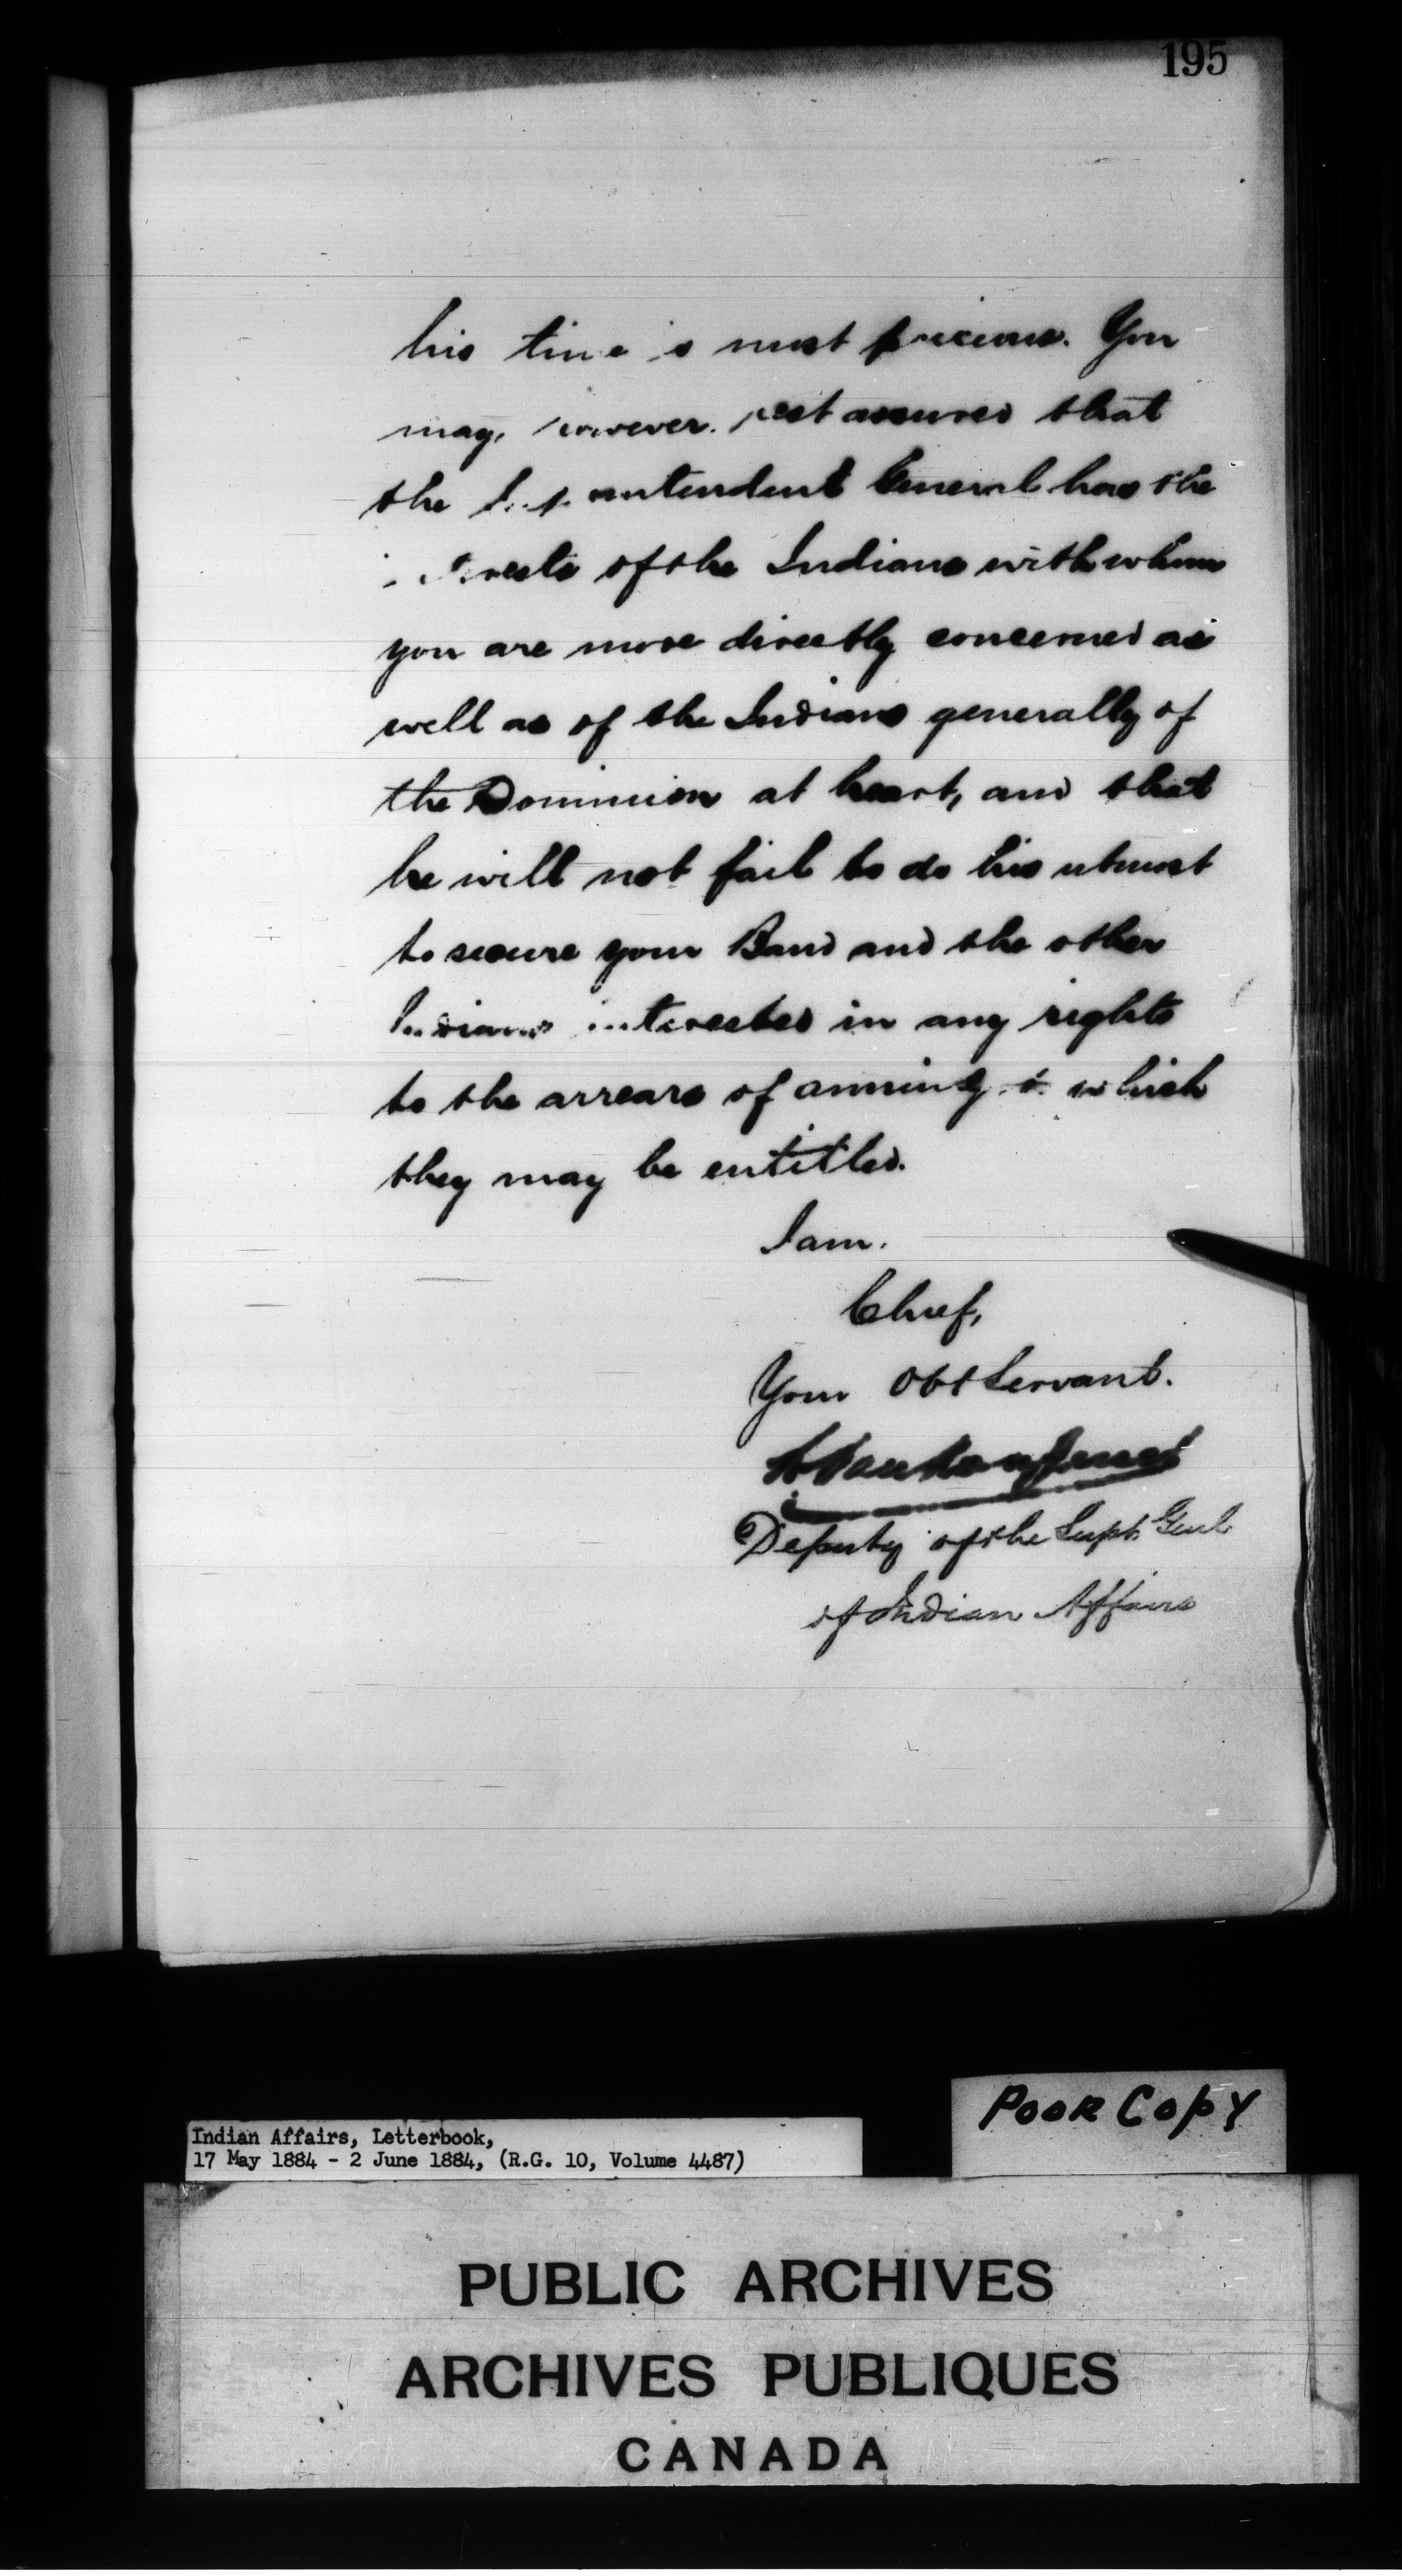 195
his time is most precious. You
may, however, rest assured that
the Superintendent General has the
interests of the Indians with whom
you are more directly concerned as
well as of the Indians generally of
the Dominion at heart, and that
he will not fail to do his utmost
to secure your Band and the other
Indians interested in any rights
to the arrears of annuity to which
they may be entitled.
I am.
Chief,
Your Obt Servant.
Deputy of the Supt. Genl.
of Indian Affairs
POOR COPY
Indian Affairs, Letterbook,
17 May 1884 - 2 June 1884, (R.G. 10, Volume 4487)
PUBLIC ARCHIVES
ARCHIVES PUBLIQUES
CANADA